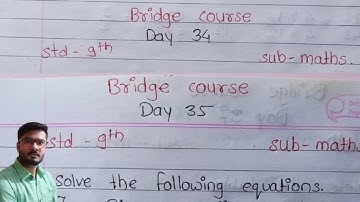 Bridge course
Day 34
std - 9th
sub - maths.
Bridge course
Day 35
std - 9th
sub - math
solve the following equations.